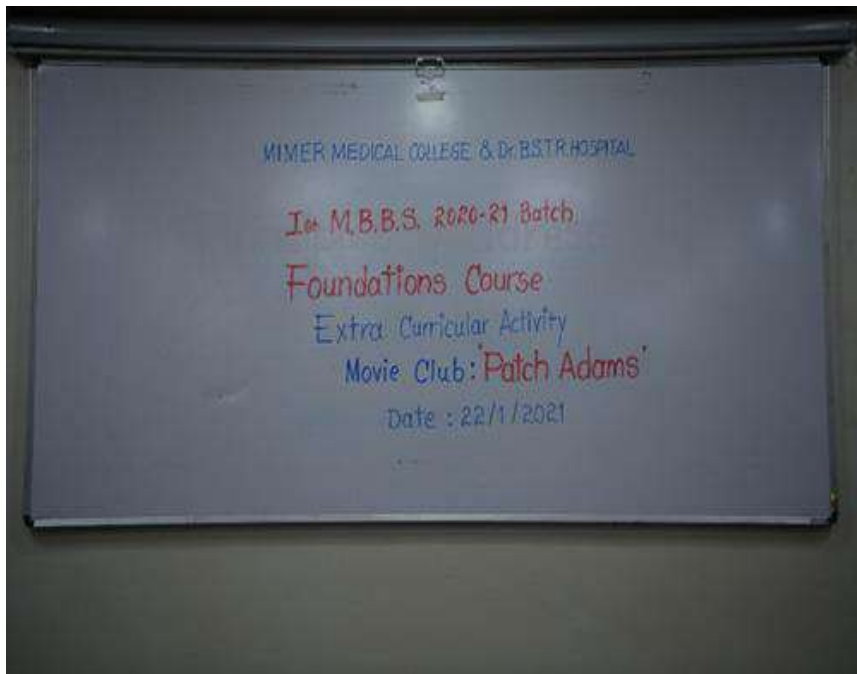 MIMER MEDICAL COLLEGE & Dr. B.S.T.R. HOSPITAL
Ist M.B.B.S. 2020-21 Batch.
Foundations Course
Extra Curricular Activity
Movie Club: 'Patch Adams'
Date : 22/1/2021